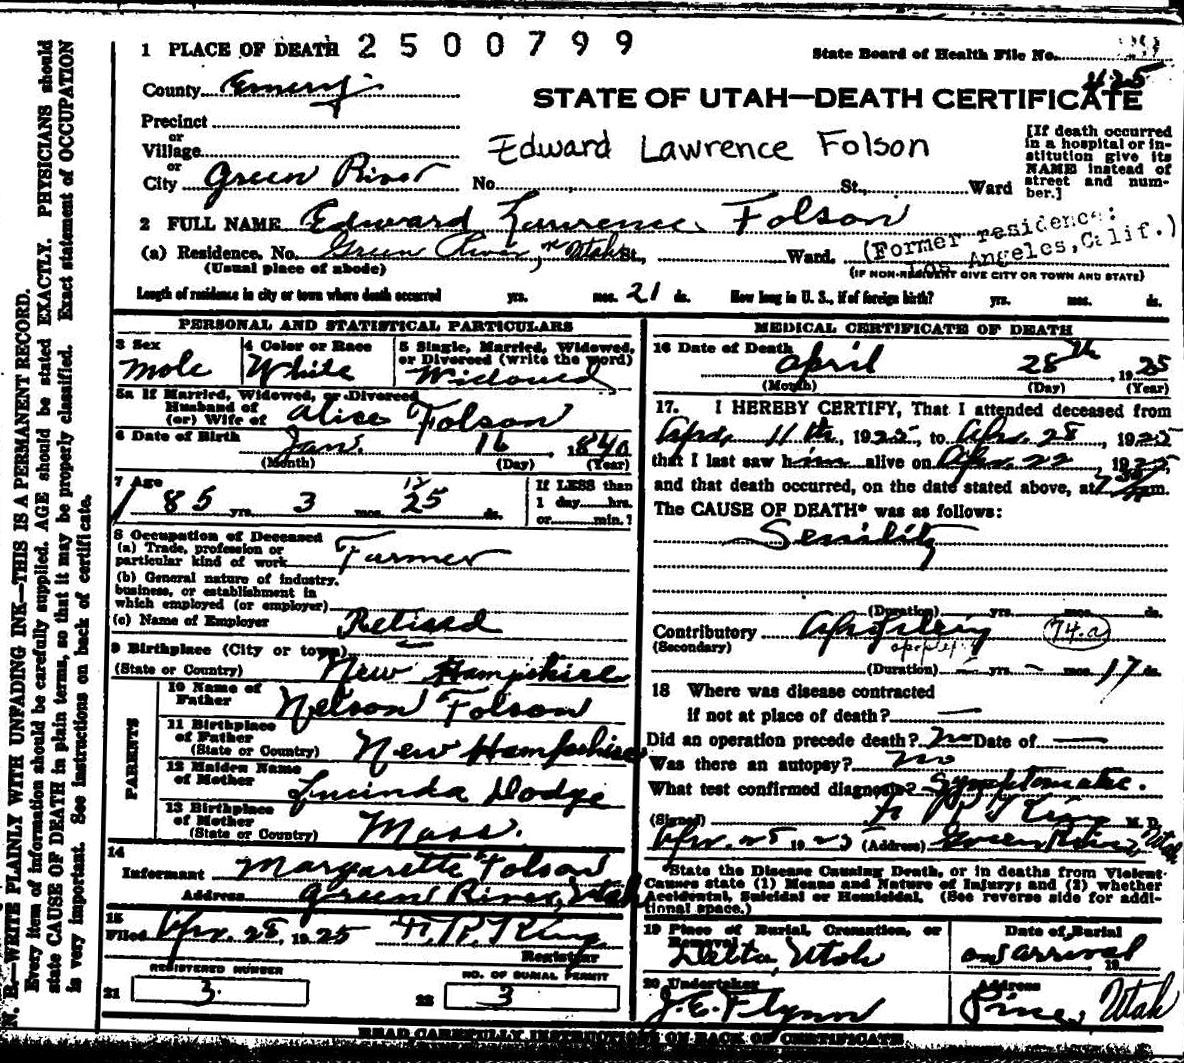 1 PLACE OF DEATH 2500799
State Board of Health File No.
425
County Emery
STATE OF UTAH—DEATH CERTIFICATE
Precinct
or
Village
or
City Green River
Edward Lawrence Folson
No. St., Ward
[If death occurred
in a hospital or in-
stitution give its
NAME instead of
street and num-
ber.]
2 FULL NAME Edward Lawrence Folson
(a) Residence. No. Green River, Utah St., Ward.
(Usual place of abode)
(Former residence:
Los Angeles, Calif.)
(IF NON-RESIDENT GIVE CITY OR TOWN AND STATE)
Length of residence in city or town where death occurred yrs. mos. 21 ds. How long in U. S., if of foreign birth? yrs. mos. ds.
PERSONAL AND STATISTICAL PARTICULARS
3 Sex
Male
4 Color or Race
White
5 Single, Married, Widowed,
or Divorced (write the word)
Widowed
5a If Married, Widowed, or Divorced
Husband of
(or) Wife of Alice Folson
6 Date of Birth Jan. 16, 1840
(Month) (Day) (Year)
7 Age
85 yrs. 3 mos. 12 25 ds.
If LESS than
1 day hrs.
or min.?
8 Occupation of Deceased
(a) Trade, profession or
particular kind of work Farmer
(b) General nature of industry,
business, or establishment in
which employed (or employer)
(c) Name of Employer Retired
9 Birthplace (City or town)
(State or Country) New Hampshire
PARENTS
10 Name of
Father Nelson Folson
11 Birthplace
of Father
(State or Country) New Hampshire
12 Maiden Name
of Mother Lucinda Dodge
13 Birthplace
of Mother
(State or Country) Mass.
14
Informant Margarette Folson
Address Green River, Utah
15
Filed Apr. 28, 1925 F. R. King
Registrar
REGISTERED NUMBER
21 3
NO. OF BURIAL PERMIT
22 3
MEDICAL CERTIFICATE OF DEATH
16 Date of Death
April 28th, 1925
(Month) (Day) (Year)
17. I HEREBY CERTIFY, That I attended deceased from
Apr. 11th, 1925, to Apr. 28, 1925
that I last saw him alive on Apr. 22, 1925,
and that death occurred, on the date stated above, at 7 m.
The CAUSE OF DEATH* was as follows:
Senility
(Duration) yrs. mos. ds.
Contributory 74.a
(Secondary)
apoplexy
(Duration) yrs. mos. 17 ds.
18 Where was disease contracted
if not at place of death? —
Did an operation precede death? no Date of —
Was there an autopsy? no
What test confirmed diagnosis? Symptomatic.
(Signed) F. R. King M. D.
Apr. 28 1925 (Address) Green River, Utah
*State the Disease Causing Death, or in deaths from Violent
Causes state (1) Means and Nature of Injury; and (2) whether
Accidental, Suicidal or Homicidal. (See reverse side for addi-
tional space.)
19 Place of Burial, Cremation, or
Removal
Delta, Utah
Date of Burial
on arrival 19
20 Undertaker
J. E. Flynn
Address
Price, Utah
READ CAREFULLY INSTRUCTIONS ON BACK OF CERTIFICATE
N. B.—WRITE PLAINLY WITH UNFADING INK—THIS IS A PERMANENT RECORD.
Every item of information should be carefully supplied. AGE should be stated EXACTLY. PHYSICIANS should
state CAUSE OF DEATH in plain terms, so that it may be properly classified. Exact statement of OCCUPATION
is very important. See instructions on back of certificate.